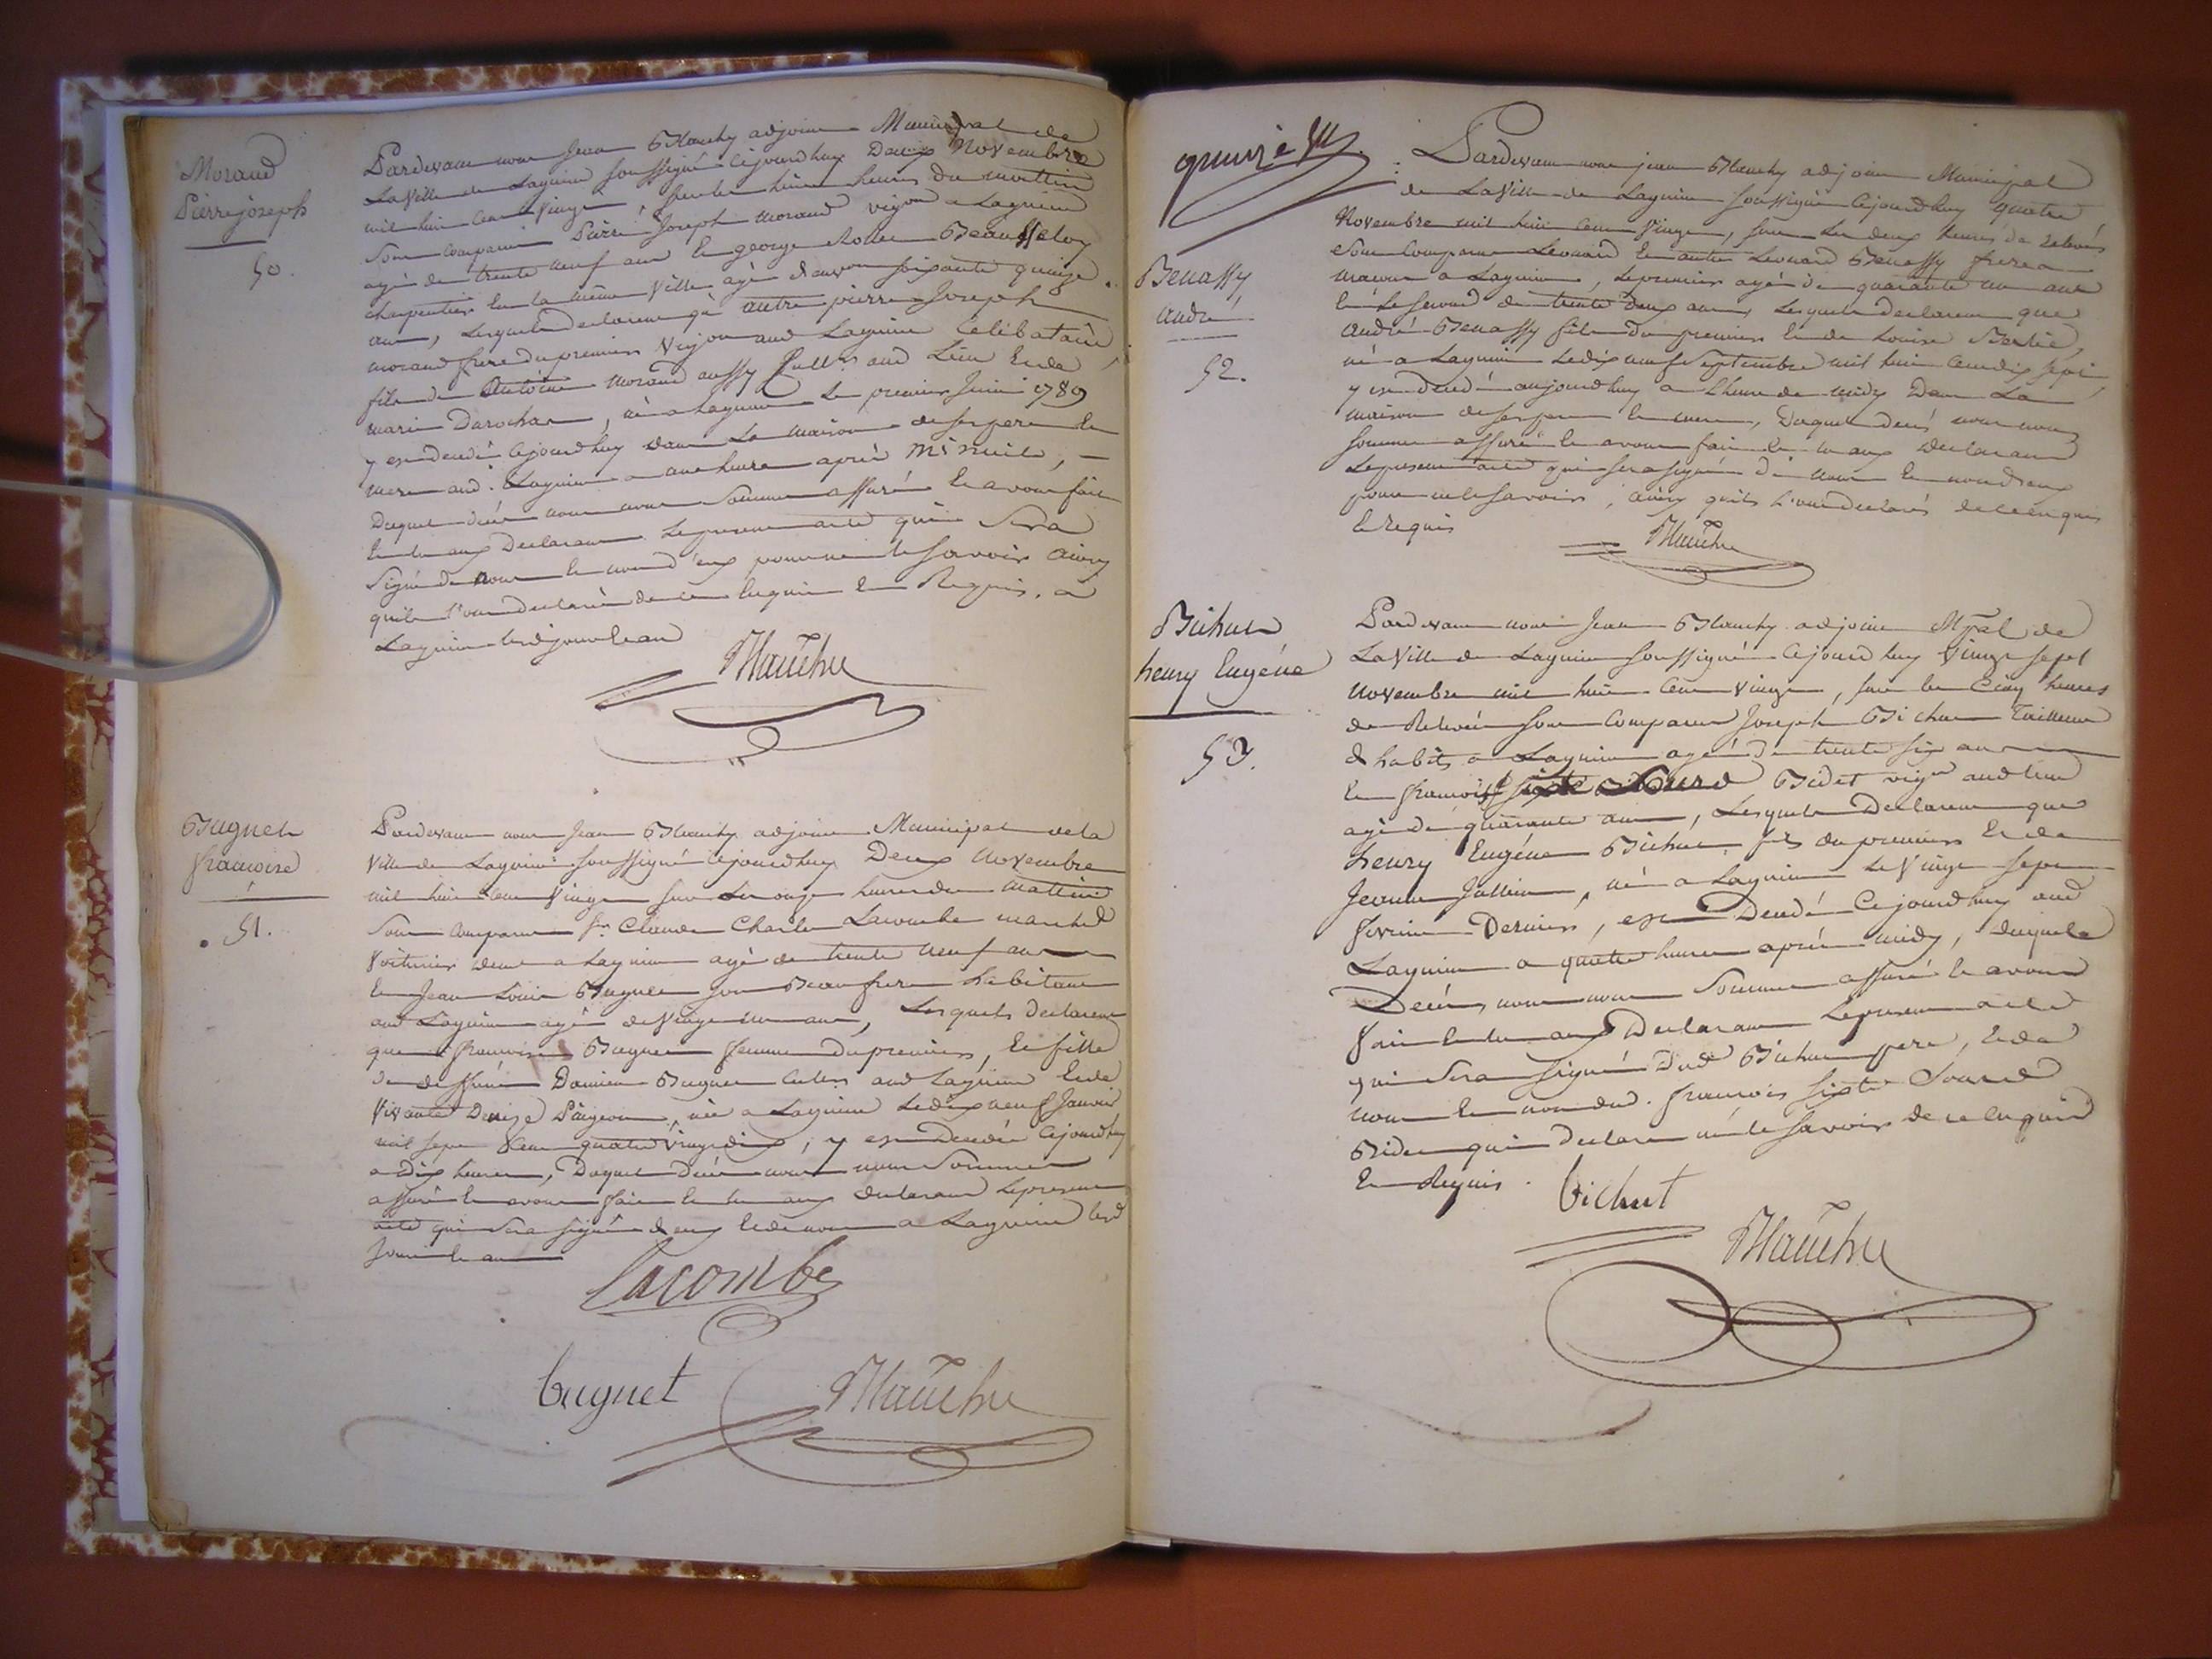 Morand
Pierre joseph
50.
Pardevant nous Jean Blanchy adjoint Municipal de
La Ville de Lagnieu soussigné Cejourdhuy Deux Novembre
mil huit Cent Vingt, sur les huit heures du mattin
Sont comparu Pierre Joseph morand vigon a Lagnieu
agé de trente neuf ans Et george
charpentier En la même Ville agé denviron soixante quinze
ans, Lesquels declarent qu' autre pierre Joseph
morand frere du premier Vigon aud Lagnieu Celibataire
fils de Antoine morand aussy aud Lieu Et de
marie Darochas, né a Lagnieu Le premier Juin 1789
y est decedé Cejourdhuy dans La maison de ses pere Et
mere aud. Lagnieu a une heure après Minuit, —
Duquel décès nous nous sommes assuré Et avons fait
Lecture aux Declarants Le present acte qui Sera
Signé de nous Et non d'eux pour ne le savoir ainsy
quils l'ont declaré de ce Enquis Et Requis. a
Lagnieu lesd jour Et an
Blanchy
Buguet
francoise
51.
Pardevant nous Jean Blanchy adjoint Municipal de la
Ville de Lagnieu soussigné Cejourdhuy Deux Novembre
mil huit Cent Vingt sur Les onze heures du mattin
Sont comparu Sr. Claude Charles Lacombe marchd
Voiturier demt a Lagnieu agé de trente neuf ans
Et Jean Louis Buguet son Beau frere habitant
aud Lagnieu agé de Vingt un ans, Lesquels declarent
que francoise Buguet femme du premier, Et fille
de deffunt Damien Buguet aud Lagnieu Et de
Vivante Denise Pingeon, née a Lagnieu Le dix neuf Janvier
mil sept Cent quatre Vingt dix, y est Decedée Cejourdhuy
a Dix heures, Duquel décès nous nous Sommes
assuré Et avons fait Lecture aux declarants Le present
acte qui Sera Signé d'eux Et de nous a Lagnieu lesd
Jour Et an
Lacombe
buguet Blanchy
Benassy
andré
52.
Pardevant nous jean Blanchy adjoint Municipal
de La Ville de Lagnieu soussigné Cejourdhuy quatre
Novembre mil huit Cent Vingt, sur Les deux heures de relevée
Sont Comparu Leonard Et autre Leonard Benassy freres
macons a Lagnieu, Le premier agé de quarante un ans
Et Le second de trente deux ans, Lesquels declarent que
André Benassy fils du premier Et de Louise Bertie
né a Lagnieu Le dix neuf Septembre mil huit Cent dix sept
y est decedé aujourdhuy a L'heure de midy Dans La
maison de ses pere Et mere, Duquel décès nous nous
sommes assuré Et avons fait Lecture aux declarants
Le present acte qui sera signé de nous Et non d'eux
pour ne le savoir, ainsy quils L'ont declaré de ce enquis
Et requis
Blanchy
Bichut
henry Eugéne
53.
Pardevant nous Jean Blanchy adjoint Mpal de
La Ville de Lagnieu soussigné Cejourdhuy Vingt sept
Novembre mil huit Cent Vingt, sur les Cinq heures
de Relevée sont Comparu Joseph Bichut Tailleur
d'habits a Lagnieu agé de trente six ans
Et francois Sixte Sourd Bidet vign aud Lieu
agé de quarante ans, Lesquels Declarent que
henry Eugéne Bichut, fils du premier Et de
Jeanne Jullien, né a Lagnieu Le Vingt sept
fevrier Dernier, est Decedé Cejourdhuy aud
Lagnieu a quatre heures après midy, duquel
Décès nous nous Sommes assuré Et avons
fait Lecture aux Declarants Le present acte
qui Sera signé dud Bichut pere, Et de
nous Et non dud. francois Sixte Sourd
Bidet qui declare ne le savoir de ce Enquis
Et Requis.
bichut
Blanchy